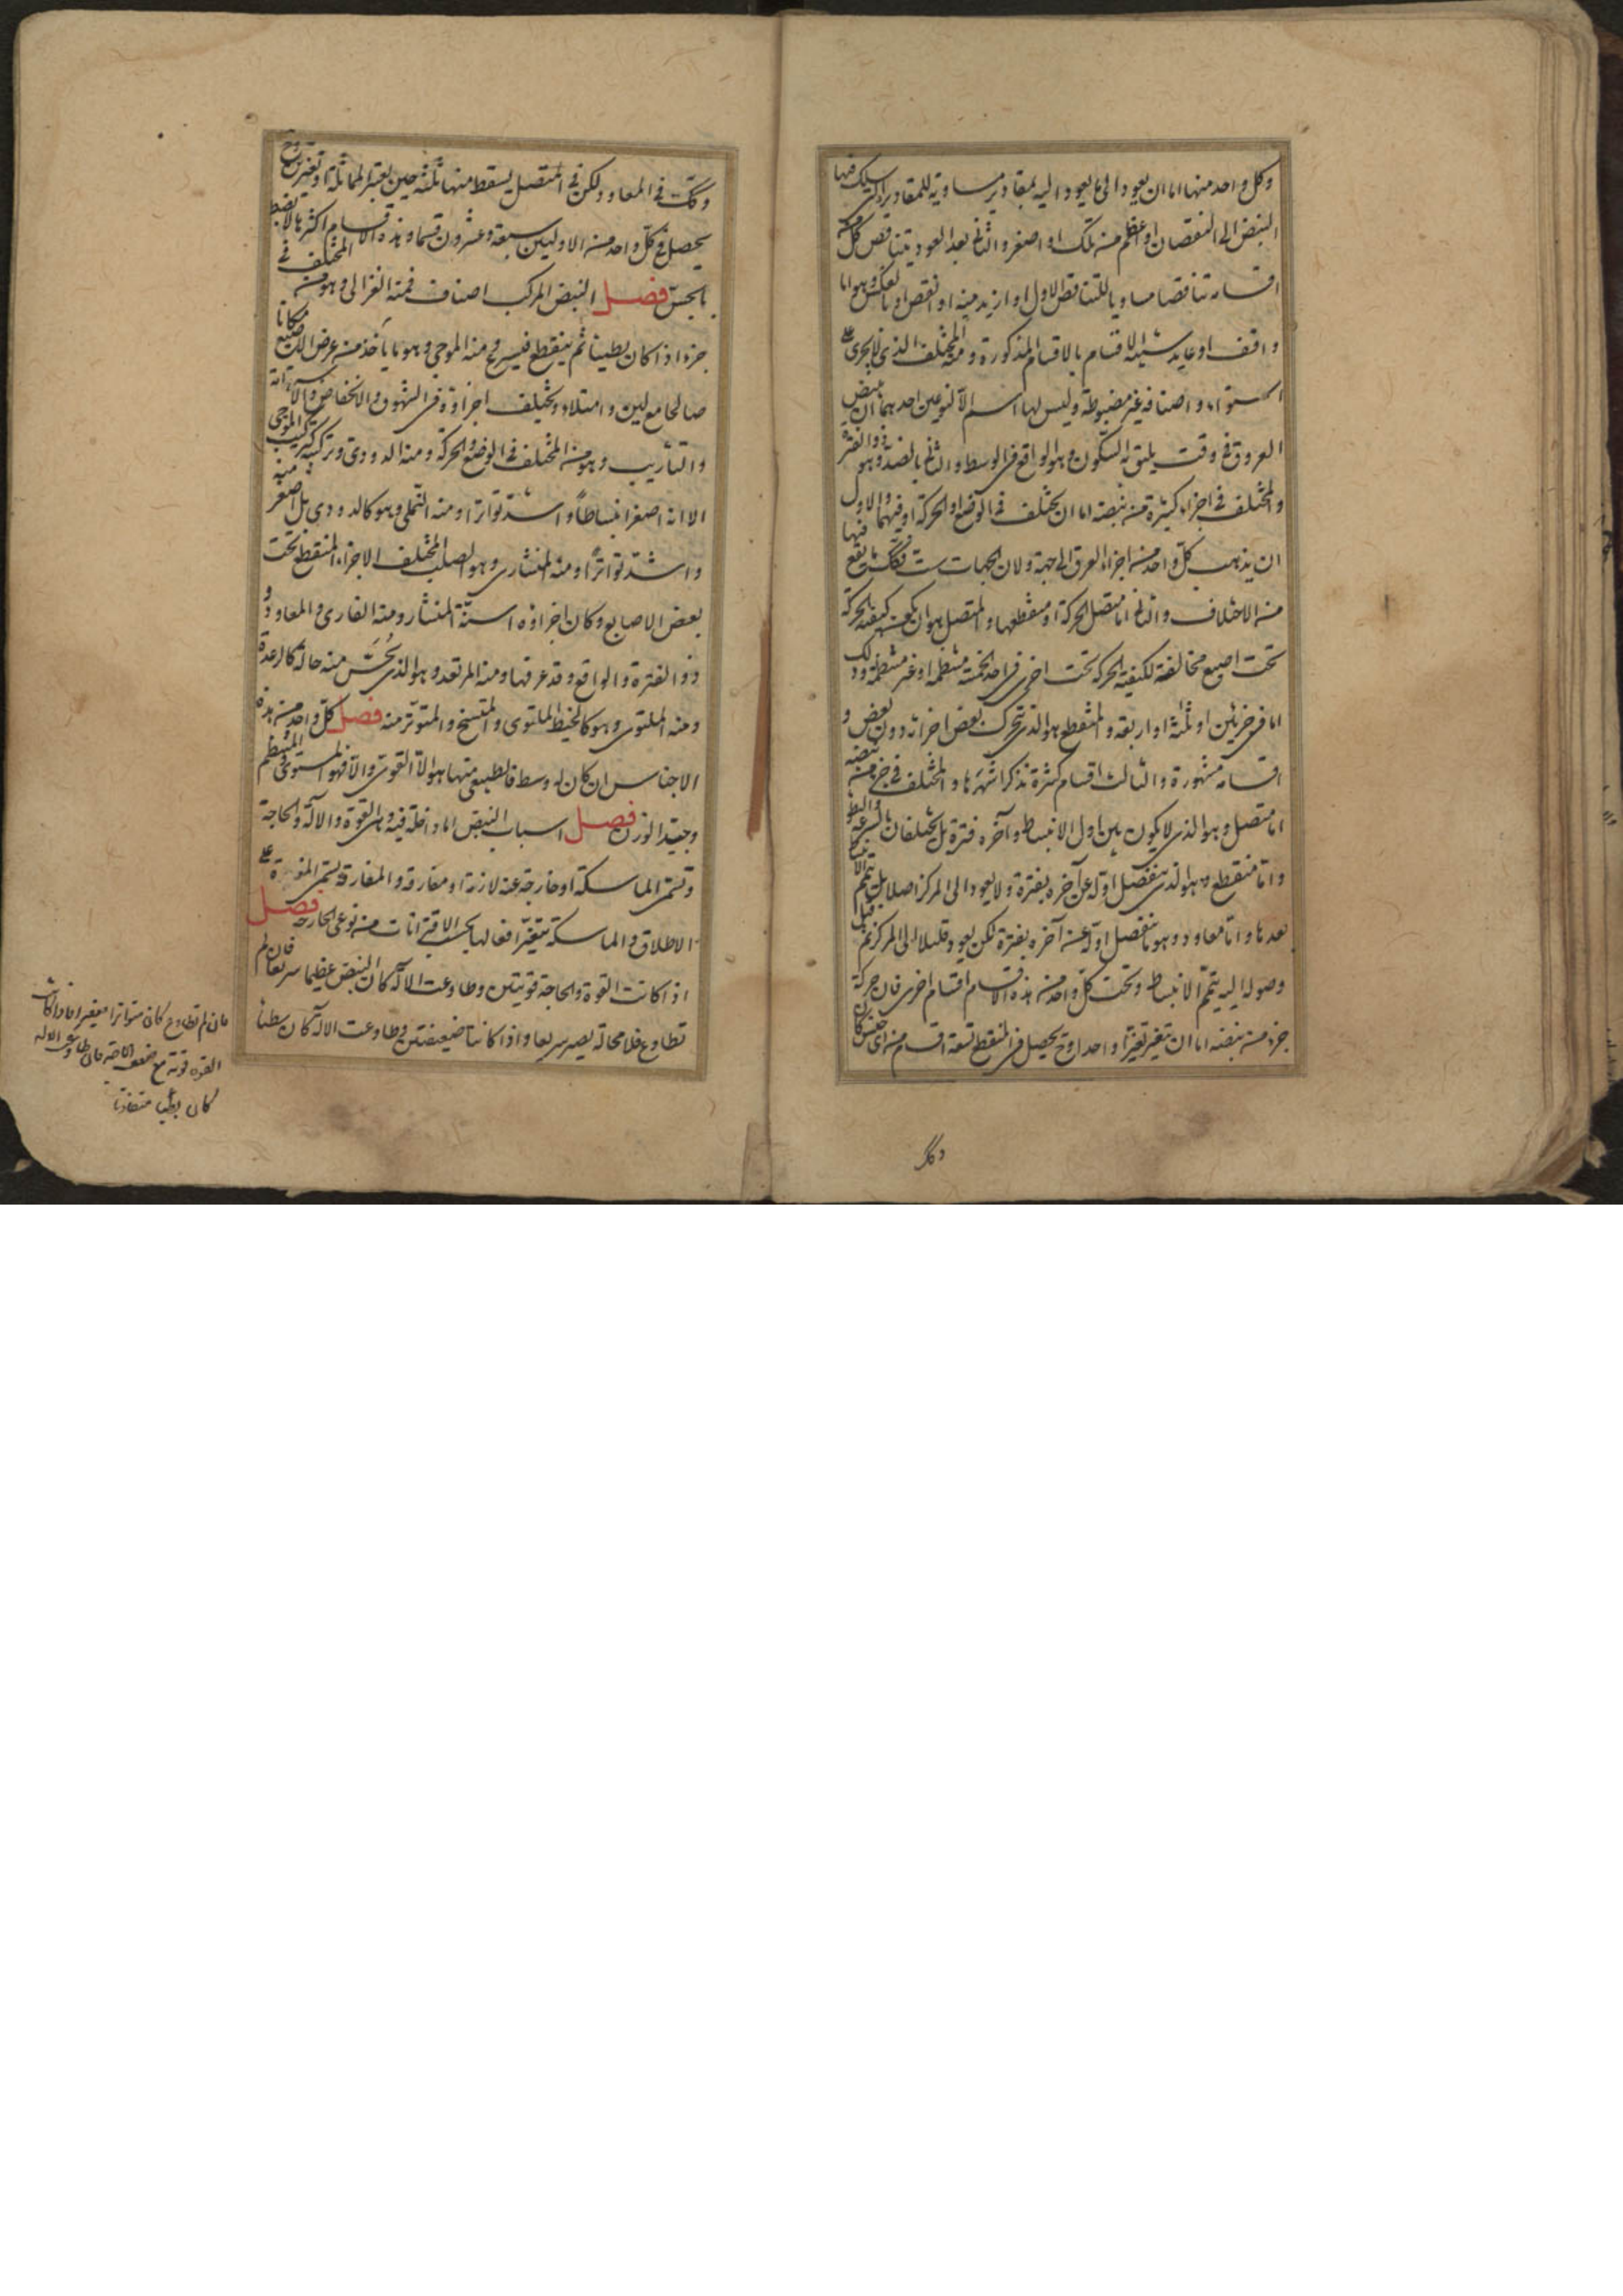 وكل واحد منها اما ان يعود او لا يعود اليه بمقادير مساوية للمقادير التي سلك فيها
النبض الى النقصان او اعظم من تلك او اصغر والثاني بعد العود يتناقص كل من
اقسامه تناقصا مساويا للتناقص الاول او ازيد منه او انقص او بالعكس وهو اما
واقف او عايد شبيه الاقسام بالاقسام المذكورة ومنه المختلف الذي لا يجرى على
استواء واصنافه غير مضبوطة وليس لها اسم الا لنوعين احدهما ان ينبض
العروق في وقت يليق به السكون وهو الواقع في الوسط والثاني بالضد وهو ذو الفترة
والمختلف في اجزاء كثيرة من نبضة اما ان يختلف في الوضع او الحركة او فيهما والاول
ان يذهب كل واحد من اجزاء العرق الى جهة ولان الجهات ست فكذلك ما يقع فيها
من الاختلاف والثاني اما متصل الحركة او منقطعها والمتصل هو ان يكون كيفية الحركة
تحت اصبع مخالفة لكيفية الحركة تحت اخرى في احد الخمسة منتظمة او غير منتظمة وذلك
اما في جزئين او ثلثة او اربعة والمنقطع هو الذي يتحرك بعض اجزائه دون بعض و
اقسامه مشهورة والثالث اقسام كثيرة نذكر اشهرها والمختلف في جزء من نبضة
اما متصل وهو الذي لا يكون بين اول الانبساط وآخره فترة بل يختلفان بالسرعة والبطؤ
واما منقطع وهو الذي ينفصل اوله عن آخره بفترة ولا يعود الى المركز اصلا بل يتم الانبساط
بعدها واما معاود وهو ما ينفصل اوله عن آخره بفترة لكن يعود قليلا الى المركز ثم قبل
وصوله اليه يتم الانبساط وتحت كل واحد من هذه الاقسام اقسام اخرى فان حركة
جزء من نبضة اما ان تتغير تغيرا واحدا وح يحصل في المنقطع تسعة اقسام من اى جنس كان
وكذلك
وكذلك في المعاود ولكن في المتصل يسقط منها ثلثة حين يعتبر المماثلة او تغيرين وح
يحصل في كل واحد من الاولين سبعة وعشرون قسما وهذه الاقسام اكثرها لا يضبط
بالحس فصل النبض المركب اصناف فمنه الغزالى وهو من المختلف في
جزء اذا كان بطيئا ثم ينقطع فيسرع ومنه الموجى وهو ما يأخذ من عرض الاصبع مكانا
صالحا مع لين وامتلاء ويختلف اجزاؤه في الشهوق والانخفاض
والتأريب وهو من المختلف في الوضع والحركة ومنه الدودى وتركيبه كتركيب الموجى
الا انه اصغر انبساطا واشد تواترا ومنه النملى وهو كالدودى بل اصغر منه
واشد تواترا ومنه المنشارى وهو الصلب المختلف الاجزاء المنقطع تحت
بعض الاصابع وكان اجزاؤه اسنة المنشار ومنه الفارى والمعاود و
ذو الفترة والواقع وقد عرفتها ومنه المرتعد وهو الذي يحس منه حالة كالرعدة
ومنه الملتوى وهو كالخيط الملتوى والمتسنج والمتوتر منه فصل كل واحد من هذه
الاجناس ان كان له وسط فالطبيعى منها هو الا القوى والا فهو المستوى والمنتظم
وجيد الوزن فصل اسباب النبض اما داخلة فيه وهى القوة والآلة والحاجة
وتسمى الماسكة او خارجة عنه لازمة او مفارقة والمفارقة تسمى المغيرة على
الاطلاق والماسكة يتغير افعالها بحسب الاقترانات من نوعى الخارجة فصل
اذا كانت القوة والحاجة قويتين وطاوعت الآلة كان النبض عظيما سريعا فان لم
تطاوع فلا محالة يصير سريعا واذا كانتا ضعيفتين وطاوعت الآلة كان بطيئا
فان لم تطاوع كان متواترا صغيرا فاذا كانت
القوة قوية مع ضعف الحاجة فان طاوعت الآلة
كان بطيئا متفاوتا